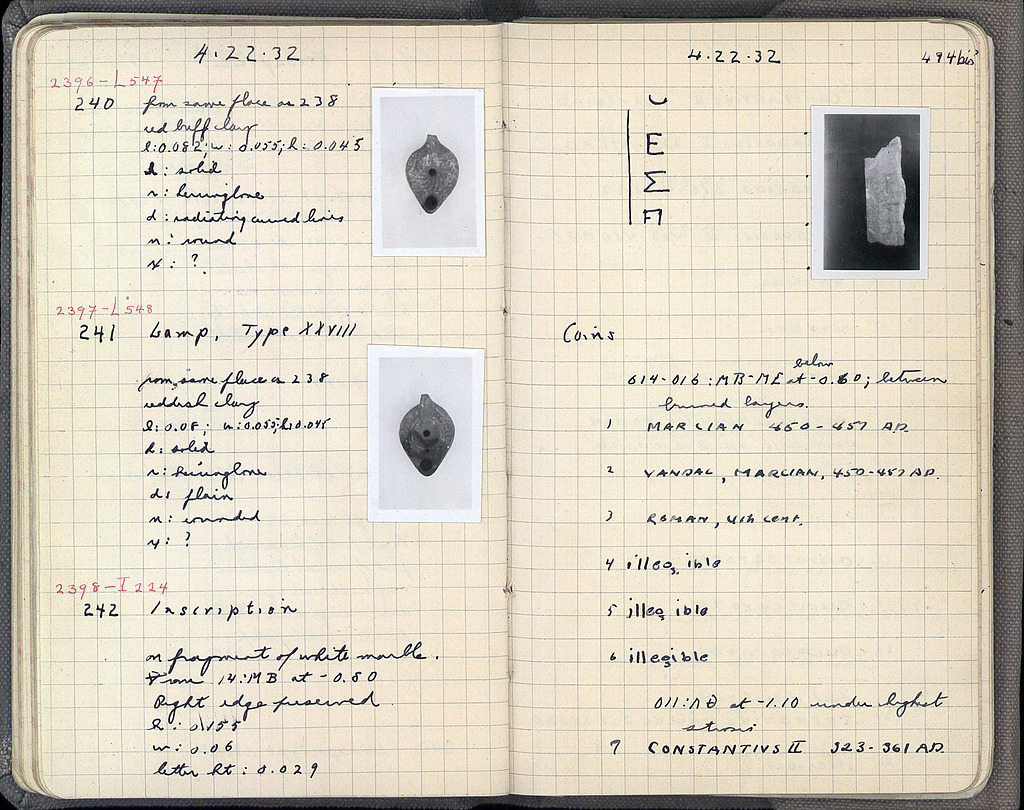 4.22.32
2396-L547
240 from same place as 238
red buff clay
l:0.082; w: 0.055; h: 0.045
h: solid
r: herringbone
d: radiating curved lines
n: round
x: ?
2397-L548
241 Lamp, Type XXVIII
from same place as 238
reddish clay
l: 0.08; w: 0.055; h: 0.045
h: solid
r: herringbone
d: plain
n: rounded
y: ?
2398-I 224
242 Inscription
on fragment of white marble.
From 14:MB at -0.80
Right edge preserved
h: 0.155
w: 0.06
letter ht: 0.029
4.22.32
494bis
E
Σ
Π
Coins
below
614-016: MB-ME at -0.80; between
burned layers.
1 MARCIAN 450-457 AD
2 VANDAL, MARCIAN, 450-457 AD.
3 ROMAN, 4th cent.
4 illegible
5 illegible
6 illegible
at -1.10 under highest
strosis
7 CONSTANTIUS II 323-361 AD.